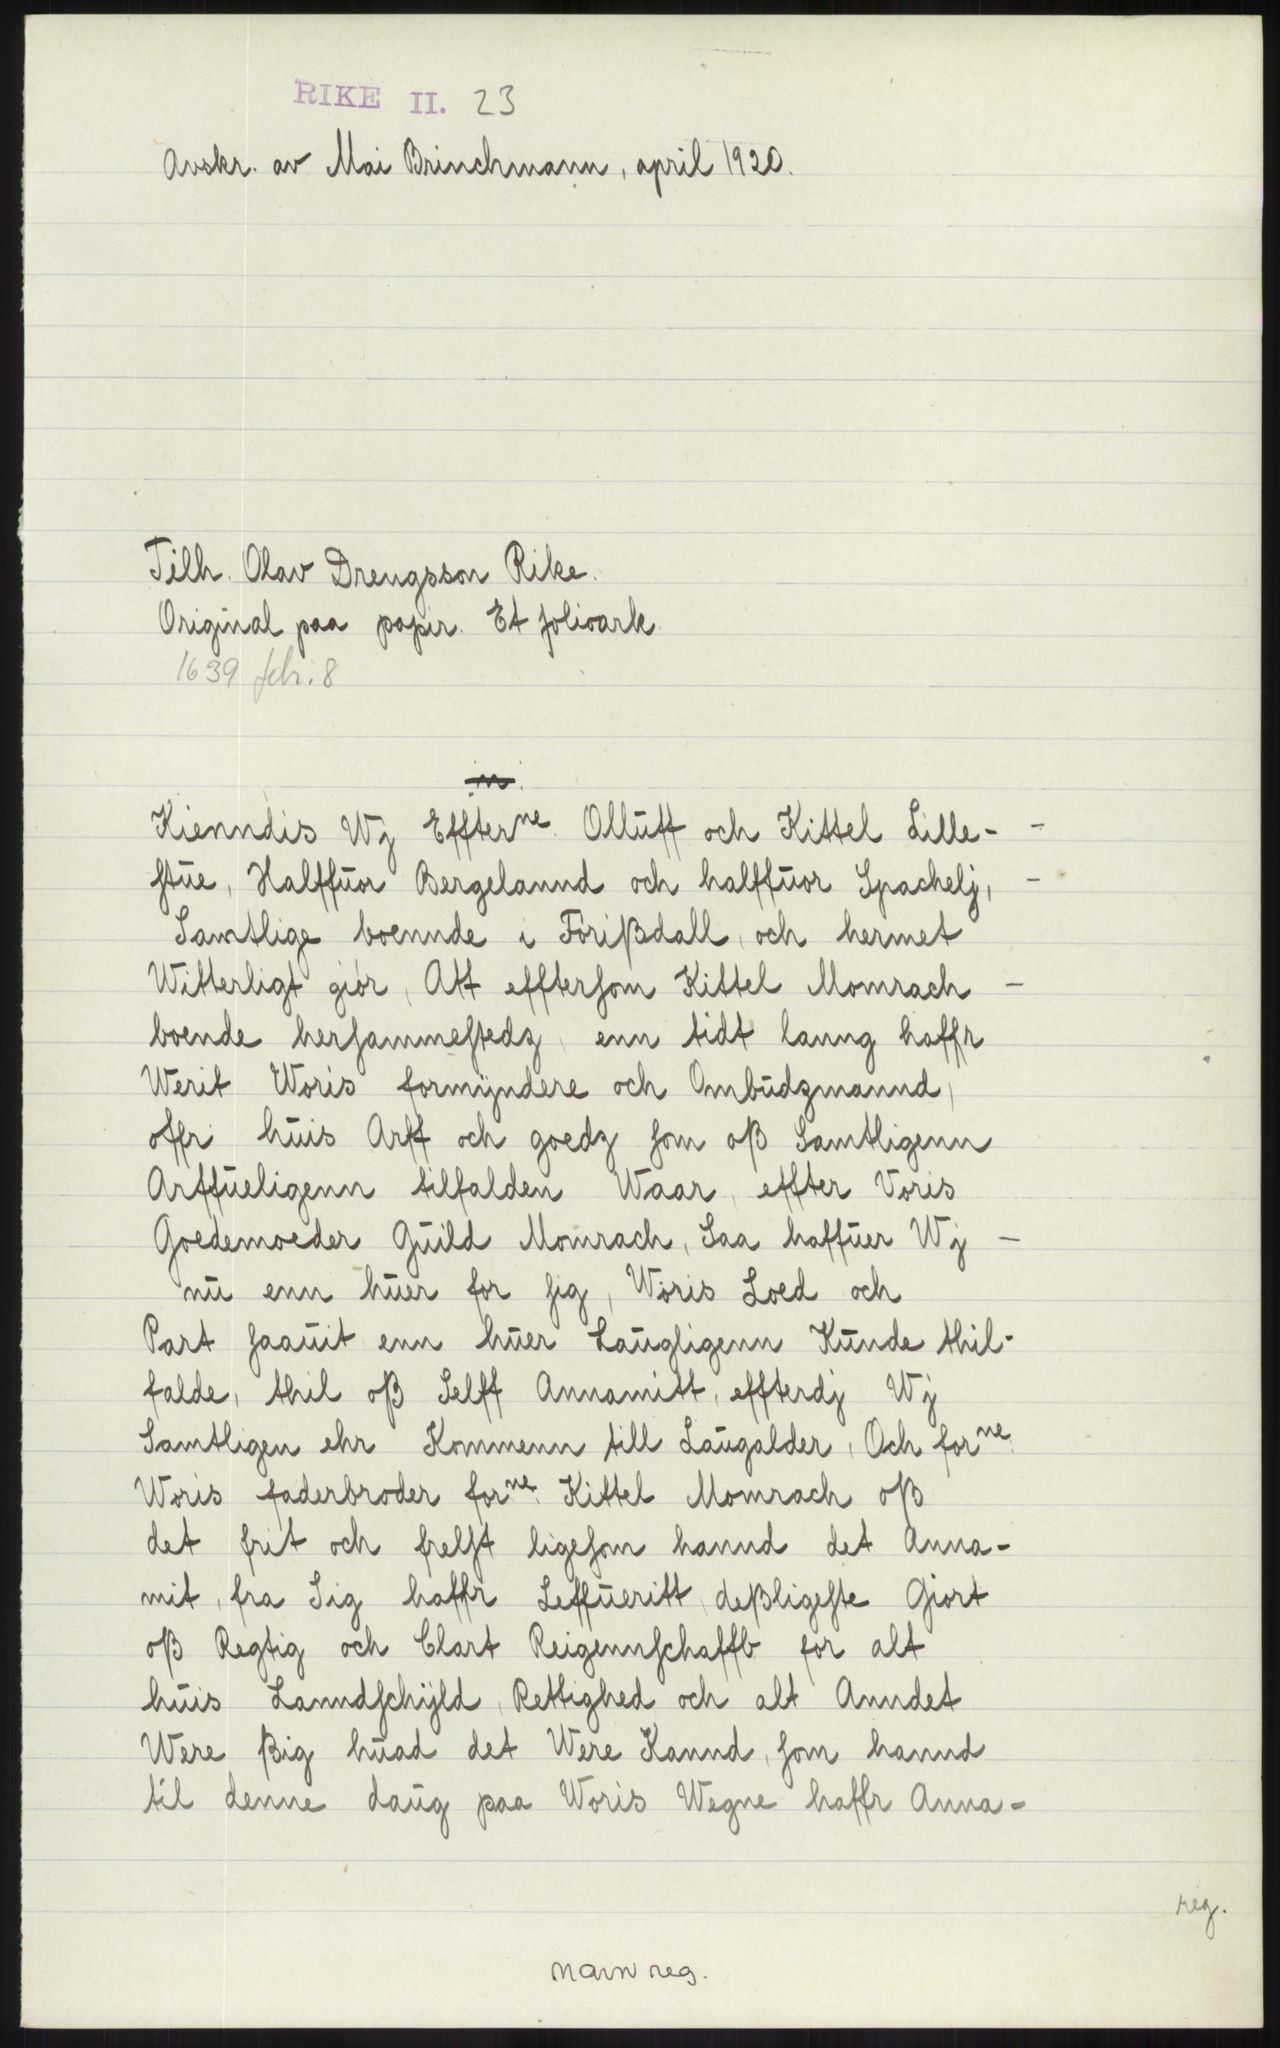 RIKE II. 23
Avskr. av Mai Brinchmann, april 1920.
Tilh. Olav Drengsson Rike.
Original paa papir. Et folioark.
1639 febr. 8
Kienndis Wj Effterne. Olluff och Kittel Lille- -
stue, Halffuor Bergelannd och halffuor Spachelj, -
Samtlige boennde i Förißdall, och hermet
Witterligt giör, Att efftersom Kittel Momrach -
boende hersammestedz, enn tidt lanng haffr
Werit Woris formÿndere och Ombudzmannd,
offr huis Arff och goedz som oß Samtligenn
Arffueligenn tilfalden Waar, effter Voris
Goedemoeder Guild Momrach, Saa haffuer Wj -
nu enn huer for sig, Woris Loed och
Part saauit enn huer Laugligenn Kunde thil-
falde, thil oß Selff Annamitt, effterdj Wj
Samtligen ehr Kommenn till Laugalder, Och forne.
Woris faderbroder forne. Kittel Momrach oß
det frit och frelst ligesom hannd det Anna-
mit, fra Sig haffr Leffueritt, deßligeste Giort
oß Regtig och Clart Reigennschaffb for alt
huis Lanndschÿld, Rettighed och alt Anndet
Were ßig huad det Were Kannd, som hannd
til denne daug paa Woris Wegne haffr Anna-
reg.
navn reg.